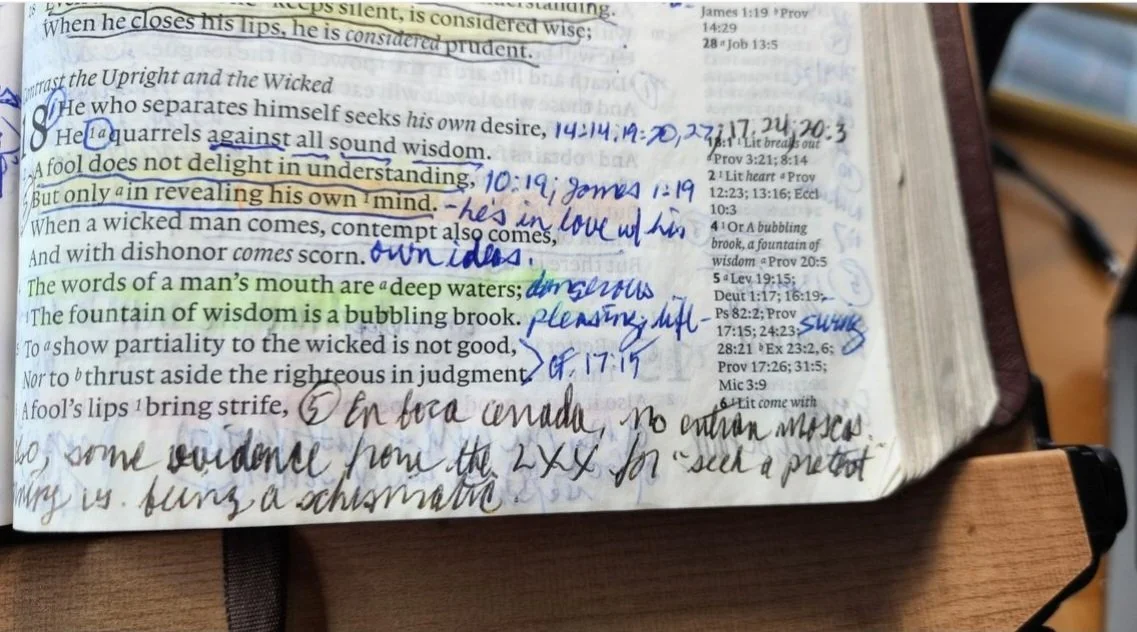 keeps silent, is considered wise;
When he closes his lips, he is considered prudent.
Contrast the Upright and the Wicked
18 He who separates himself seeks his own desire, 14:14; 19:20, 27; 17:24; 20:3
He 1a quarrels against all sound wisdom.
A fool does not delight in understanding, 10:19; James 1:19
But only a in revealing his own 1 mind. - he's in love w/ his
When a wicked man comes, contempt also comes,
And with dishonor comes scorn. own ideas.
The words of a man's mouth are a deep waters; dangerous
1 The fountain of wisdom is a bubbling brook. pleasing; life-
To a show partiality to the wicked is not good,
Nor to b thrust aside the righteous in judgment. > cf. 17:15
A fool's lips 1 bring strife, (5) En boca cerrada, no entran moscas.
some evidence from the LXX for "seek a pretext
being a schismatic.
James 1:19 b Prov
14:29
28 a Job 13:5
18:1 1 Lit breaks out
a Prov 3:21; 8:14
2 1 Lit heart a Prov
12:23; 13:16; Eccl
10:3
4 1 Or A bubbling
brook, a fountain of
wisdom a Prov 20:5
5 a Lev 19:15;
Deut 1:17; 16:19;
Ps 82:2; Prov
17:15; 24:23;
28:21 b Ex 23:2, 6;
Prov 17:26; 31:5;
Mic 3:9
6 1 Lit come with